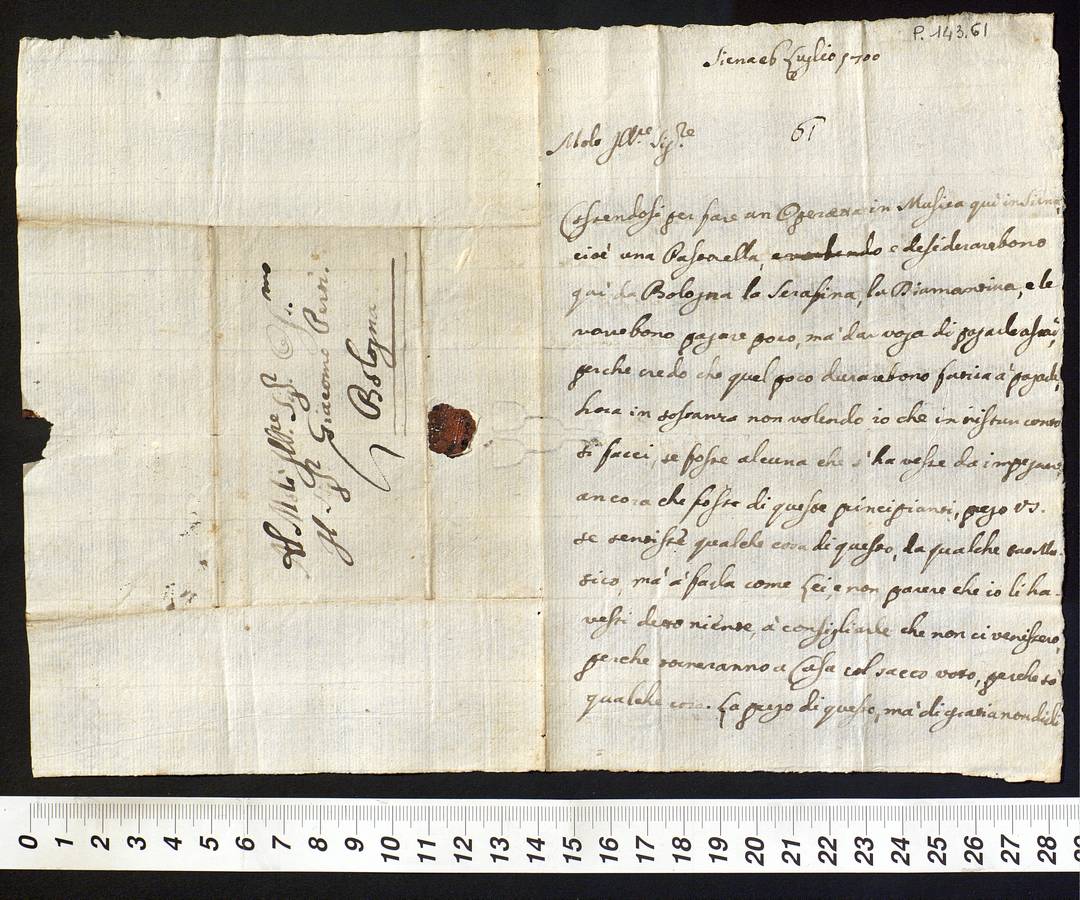 P. 143.61
Siena 6 Luglio 1700
61
Molo Ill.re Sig.re
Essendosi per fare un Operetta in Musica qui in Siena,
cioè una Pastorella, e desiderarebono
qui da Bologna la Serafina, la Diamantina, e le
vorrebono pagare poco, ma dar voga di pagarle assai,
perche credo che quel poco durarebono fatica à pagarle,
hora in sostanza non volendo io che in nistun conto
si facci, se fosse alcuna che s'havesse da impegnare,
ancora che fosse di queste principianti, prego VS.
se sentiste qualche cosa di questo, da qualche suo Mu-
sico, ma à farla come Lei e non parere che io li ha-
vesti detto niente, à consigliarle che non ci venissero,
perche torneranno a Casa col sacco voto, perche sò
qualche cosa. La prego di questo, ma di gratia non dichi
Al Molo Ill.re Sig.r
Il Sig.r Giacomo Perti.
Bologna